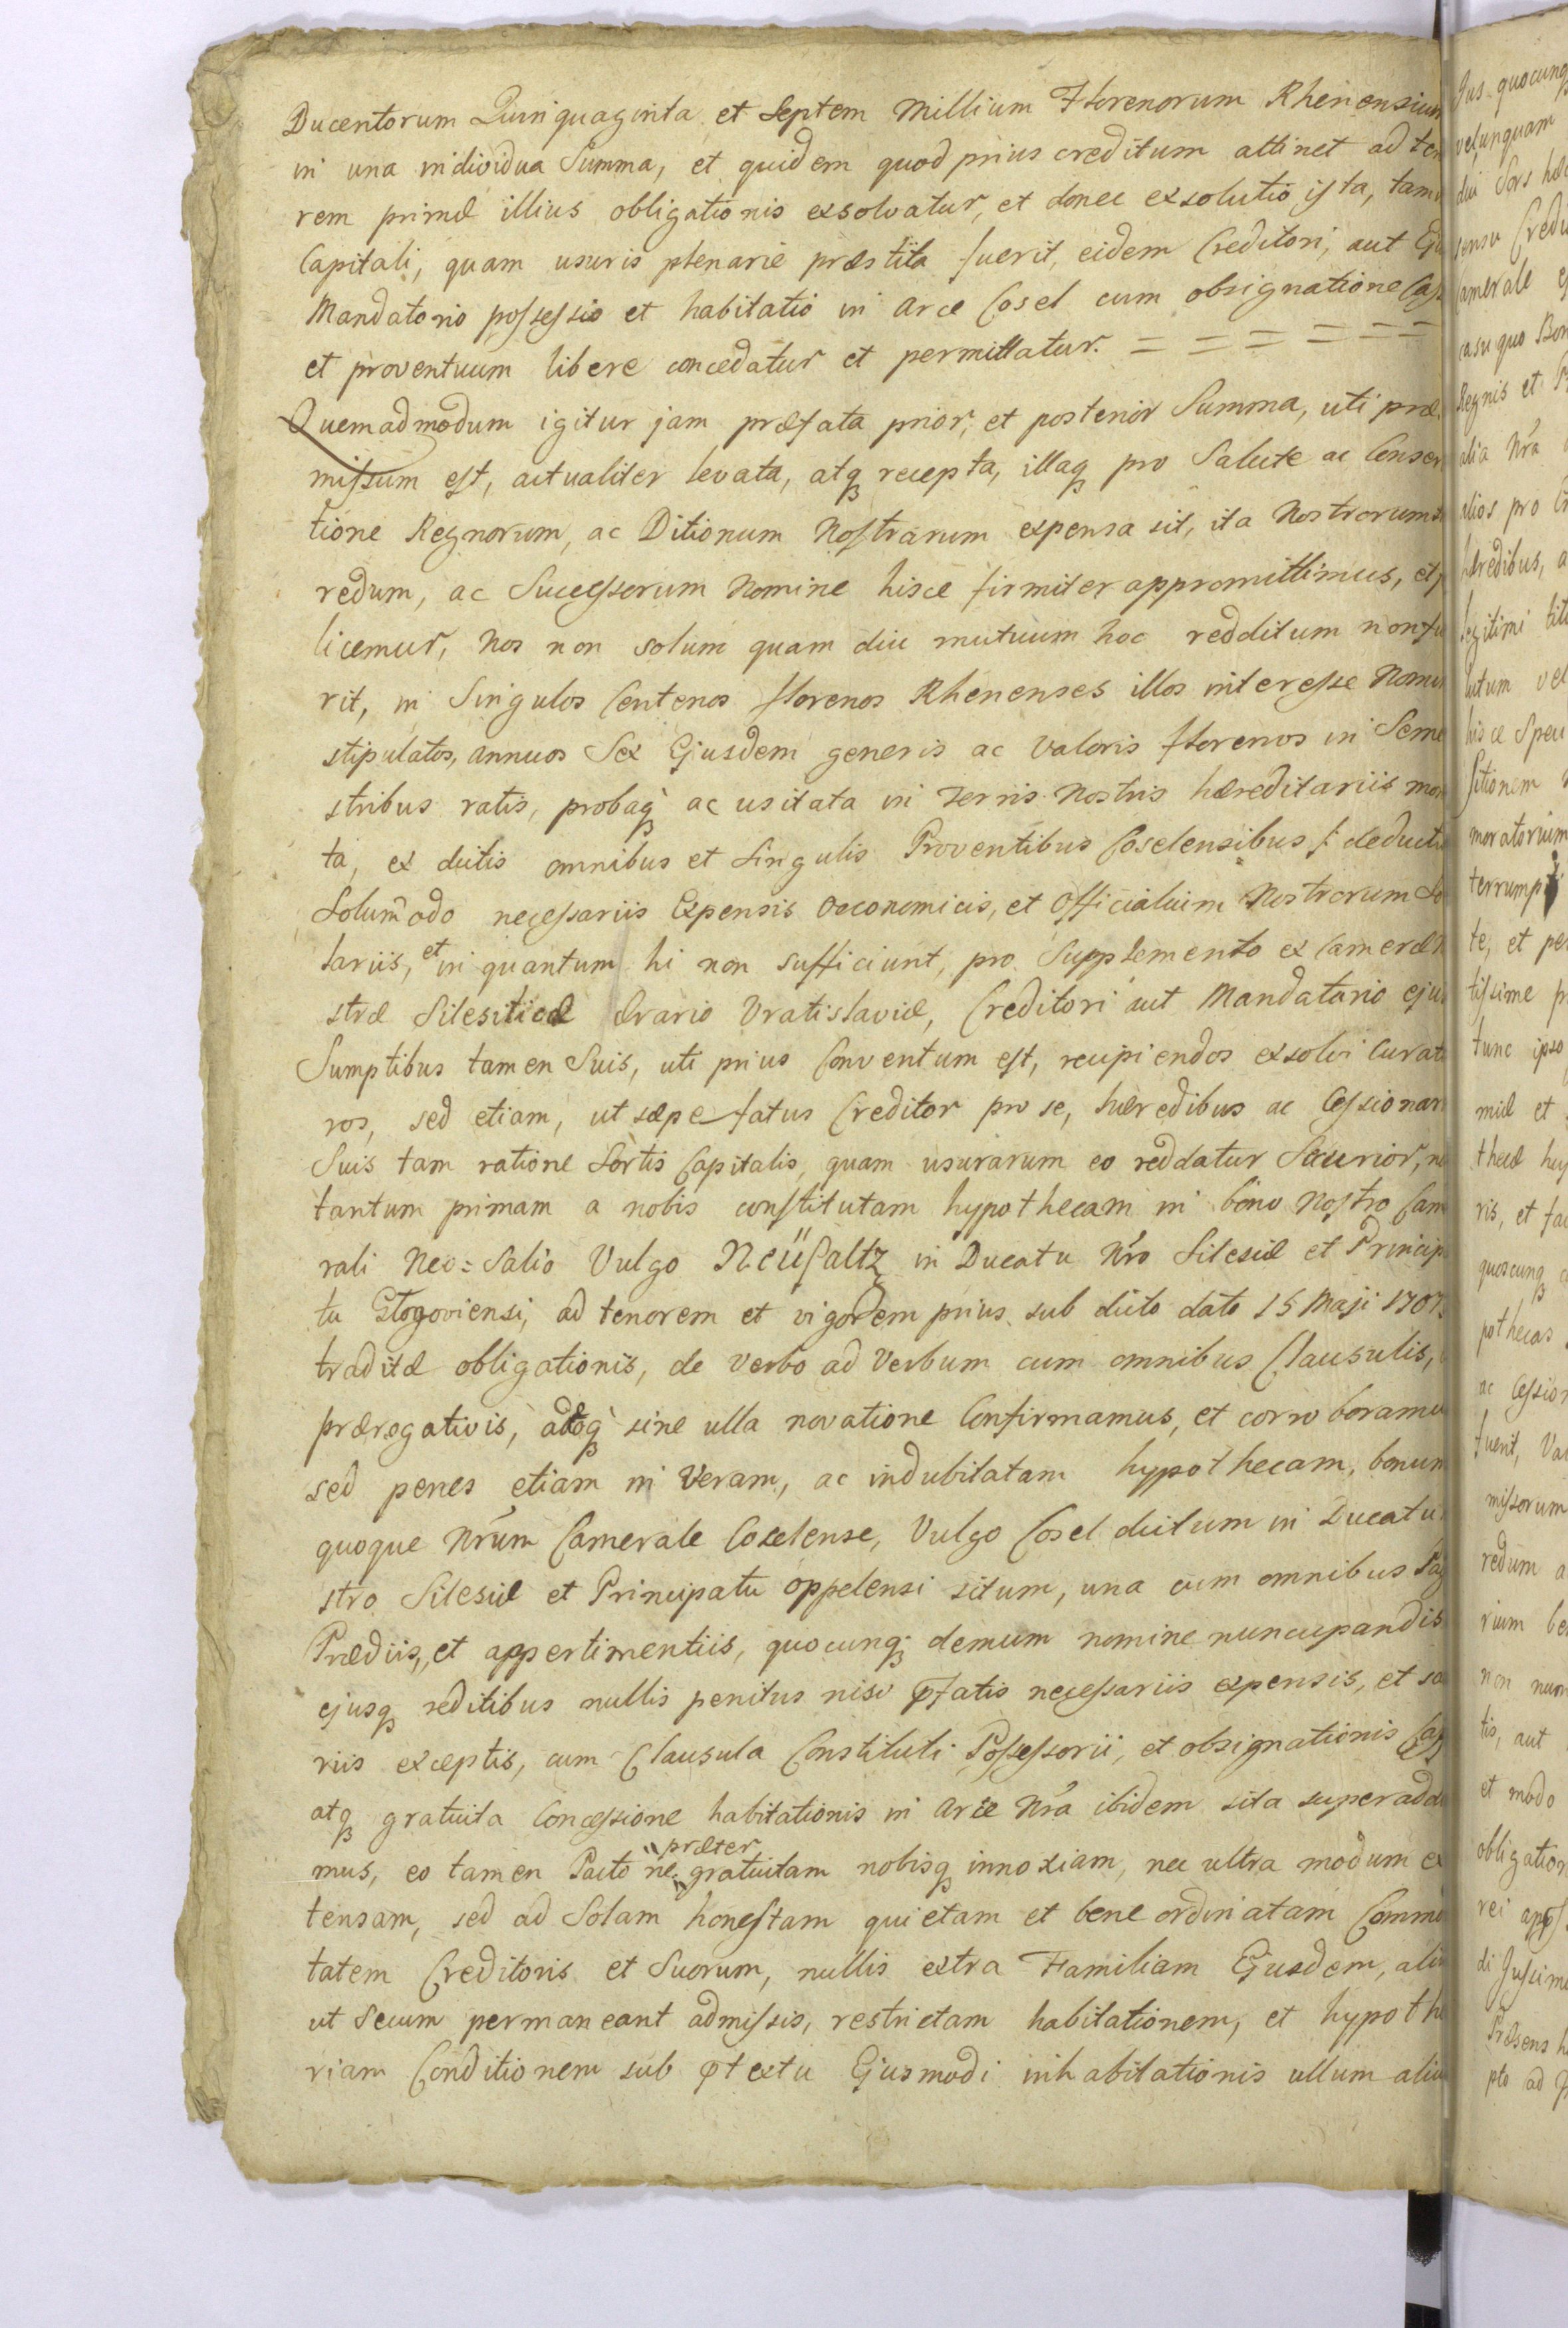 Ducentorum Quinquaginta et Septem Millium Florenorum Rhenensium
in una individua Summa, et quidem quod prius creditum attinet ad ten
rem primæ illius obligationis exsolvatur, et donec exsolutio ista, tam
Capitali, quam usuris plenarie præstita fuerit, eidem Creditori, aut Eju
Mandatorio possessio et habitatio in Arce Cosel cum obsignatione Cass
et proventuum libere concedatur et permittatur. = = = = = =
Quemadmodum igitur jam præfata prior, et posterior Summa, uti præ
missum est, actualiter levata, atq recepta, illaq pro Salute ac Conser
tione Regnorum, ac Ditionum Nostrarum expensa sit, ita Nostrorum
redum, ac Successorum Nomine hisce firmiter appromittimus, et
licemur, Nos non solum quam diu mutuum hoc redditum non fu
rit, in Singulos Centenos florenos Rhenenses illos interesse Nomin
stipulatos, annuos Sex Ejusdem generis ac valoris florenos in Seme
stribus ratis, probaq ac usitata in Terris Nostris hæreditariis mon
ta, ex dictis omnibus et Singulis Proventibus Coselensibus /: deducti
Solum̄odo necessariis Expensis Oeconomicis, et Officialium Nostrorum Sa
lariis, et in quantum hi non sufficiunt, pro Supplemento ex Cameræ N
stræ Silesiticæ Ærario Vratislaviæ, Creditori aut Mandatario ejus
Sumptibus tamen Suis, uti prius Conventum est, recipiendos exsolvi Curatu
ros, sed etiam, ut sæpe fatus Creditor pro se, hæredibus ac Cessionari
Suis tam ratione Sortis Capitalis, quam usurarum eo reddatur Securior, no
tantum primam a nobis constitutam hypothecam in bono Nostro Cam
rali Neo=Salio Vulgo Neüsaltz in Ducatu Nr̃o Silesiæ et Princip
tu Glogoviensi, ad tenorem et vigorem prius sub dicto dato 15 Maji 1707
traditæ obligationis, de verbo ad Verbum cum omnibus Clausulis,
prærogativis, adeoq sine ulla novatione Confirmamus, et corroboramu
sed penes etiam in Veram, ac indubitatam hypothecam, bonum
quoque Nr̃um Camerale Coselense, Vulgo Cosel dictum in Ducatu
stro Silesiæ et Principatu Oppelensi situm, una cum omnibus Pag
Prædiis, et appertinentiis, quocunq demum nomine nuncupandis
ejusq reditibus nullis penitus nisi p̃fatis necessariis expensis, et sa
riis exceptis, cum Clausula Constituti Possessorii, et obsignationis Cass
atq gratuita Concessione habitationis in Arce Nr̃a ibidem sita superaddi
præter
mus, eo tamen Pacto ne gratuitam nobisq innoxiam, nec ultra modum ex
tensam, sed ad Solam honestam quietam et bene ordinatam Commo
tatem Creditoris et Suorum, nullis extra Familiam Ejusdem, aliis
ut Secum permaneant admissis, restrictam habitationem, et hypothe
riam Conditionem sub p̃textu Ejusmodi inhabitationis ullum aliu
Jus quocunq
vel unquam
dui Sors hæc
sensu Credi
Camerale
casu quo Bon
Regnis et
alia Nr̃a
alios pro
hæredibus, a
legitimi titu
lutum vel
hisce Speci
sitionem
moratorium
terrumpi
te, et per
tissime pr
tunc ipso
miæ et
thecæ hy
ris, et fac
quoscunq
pothecas
ac Cession
fuerit, Va
missorum
redum a
rium be
non num
tis, aut
et modo
obligation
rei appos
di Jussimu
Præsens h
pto ad